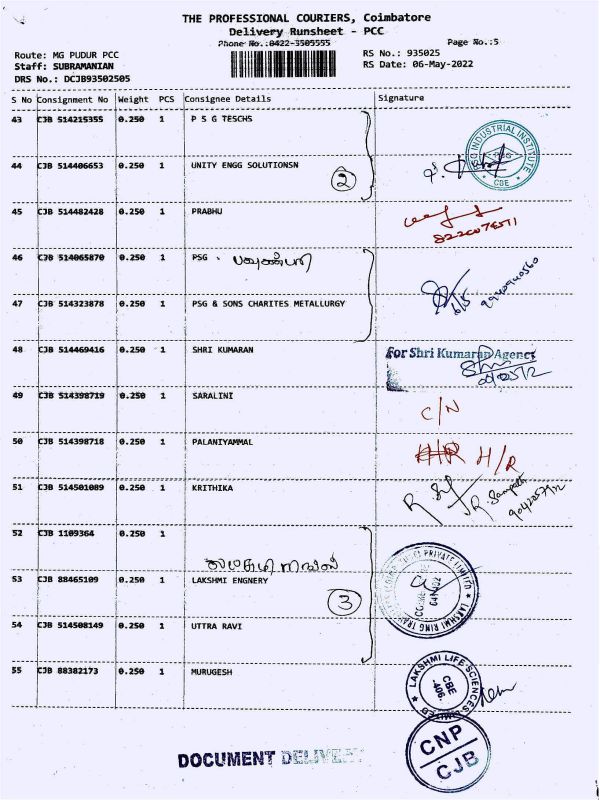 THE PROFESSIONAL COURIERS, Coimbatore
Delivery Runsheet - PCC
Phone No.:0422-3505555 Page No.:5
Route: MG PUDUR PCC RS No.: 935025
Staff: SUBRAMANIAN RS Date: 06-May-2022
DRS No.: DCJB93502505
S No Consignment No Weight PCS Consignee Details Signature
43 CJB 514215355 0.250 1 P S G TESCHS
INDUSTRIAL INSTITUTE
CBE
44 CJB 514406653 0.250 1 UNITY ENGG SOLUTIONSN
2
45 CJB 514482428 0.250 1 PRABHU
46 CJB 514065870 0.250 1 PSG
9940940560
47 CJB 514323878 0.250 1 PSG & SONS CHARITES METALLURGY
6/5
48 CJB 514469416 0.250 1 SHRI KUMARAN
For Shri Kumaran Agency
49 CJB 514398719 0.250 1 SARALINI
C/N
50 CJB 514398718 0.250 1 PALANIYAMMAL
H/R H/R
51 CJB 514501089 0.250 1 KRITHIKA
R. Sampath
52 CJB 1109364 0.250 1
53 CJB 88465109 0.250 1 LAKSHMI ENGNERY
3
PRIVATE LIMITED ★ LAKSHMI RING
54 CJB 514508149 0.250 1 UTTRA RAVI
55 CJB 88382173 0.250 1 MURUGESH
LAKSHMI LIFE SCIENCES LIMITED ★
CBE
-406.
CNP
CJB
DOCUMENT DELIVERY